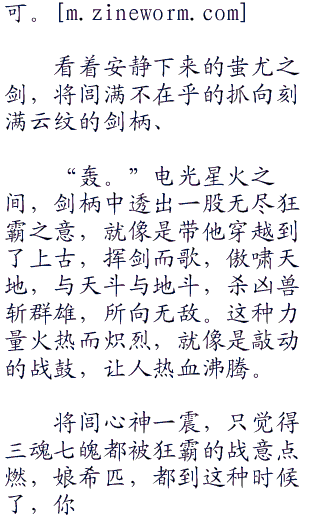 可。[m.zineworm.com]
看着安静下来的蚩尤之
剑，将闾满不在乎的抓向刻
满云纹的剑柄、
“轰。”电光星火之
间，剑柄中透出一股无尽狂
霸之意，就像是带他穿越到
了上古，挥剑而歌，傲啸天
地，与天斗与地斗，杀凶兽
斩群雄，所向无敌。这种力
量火热而炽烈，就像是敲动
的战鼓，让人热血沸腾。
将闾心神一震，只觉得
三魂七魄都被狂霸的战意点
燃，娘希匹，都到这种时候
了，你